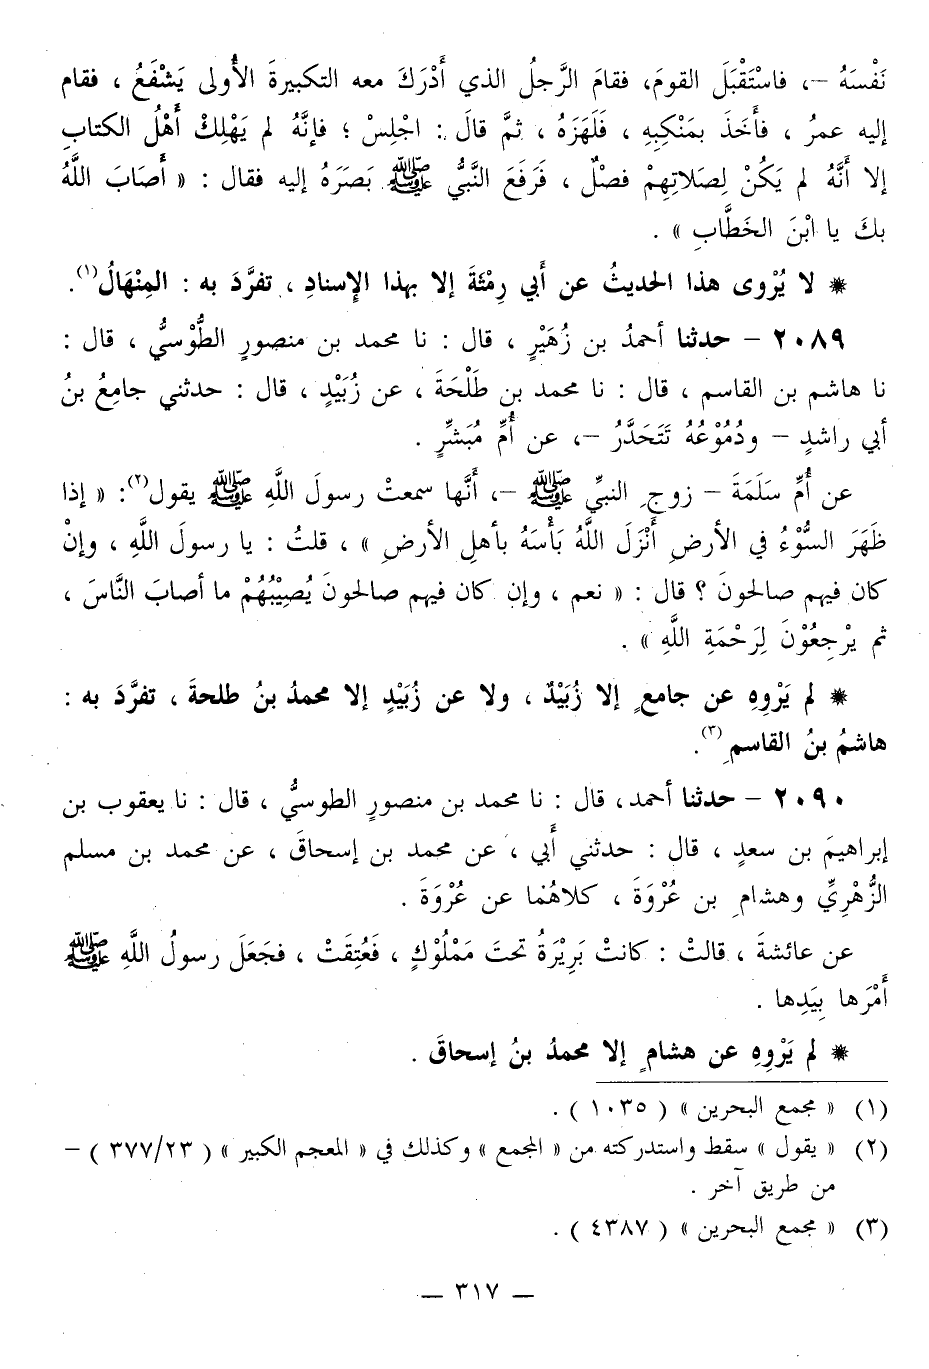 نَفْسَهُ –، فاسْتَقْبَلَ القومَ، فقامَ الرَّجلُ الذي أَدْرَكَ معه التكبيرةَ الأُولى يَشْفَعُ ، فقام
إليه عمرُ ، فأَخَذَ بمَنْكِبِهِ ، فَلَهَزَهُ ، ثمَّ قالَ : اجْلِسْ ؛ فإنَّهُ لم يَهْلِكْ أَهْلُ الكتابِ
إلا أَنَّهُ لم يَكُنْ لِصَلاتِهِمْ فصْلٌ ، فَرَفَعَ النَّبيُّ ﷺ بَصَرَهُ إليه فقال : « أَصَابَ اللَّهُ
بكَ يا ابْنَ الخَطَّابِ » .
* لا يُرْوى هذا الحديثُ عن أَبي رِمْثَةَ إلا بهذا الإِسنادِ ، تفرَّدَ به : المِنْهَالُ(١).
٢٠٨٩ – حدثنا أحمدُ بن زُهَيْرٍ ، قال : نا محمد بن منصورٍ الطُّوْسيُّ ، قال :
نا هاشم بن القاسم ، قال : نا محمد بن طَلْحَةَ ، عن زُبَيْدٍ ، قال : حدثني جامِعُ بنُ
أبي راشدٍ – ودُمُوْعُهُ تَتَحَدَّرُ –، عن أُمِّ مُبَشِّرٍ .
عن أُمِّ سَلَمَةَ – زوجِ النبيِّ ﷺ –، أَنَّها سمعتْ رسولَ اللَّهِ ﷺ يقول(٢): « إذا
ظَهَرَ السُّوْءُ في الأرضِ أَنْزَلَ اللَّهُ بَأْسَهُ بأهلِ الأرضِ » ، قلتُ : يا رسولَ اللَّهِ ، وإنْ
كان فيهم صالحونَ ؟ قال : « نعم ، وإن كان فيهم صالحونَ يُصِيْبُهُمْ ما أصابَ النَّاسَ ،
ثم يرْجِعُوْنَ لِرَحْمَةِ اللَّهِ » .
* لم يَرْوِهِ عن جامعٍ إلا زُبَيْدٌ ، ولا عن زُبَيْدٍ إلا محمدُ بنُ طلحةَ ، تفرَّدَ به :
هاشمُ بنُ القاسمِ(٣).
٢٠٩٠ – حدثنا أحمد، قال : نا محمد بن منصورٍ الطوسيُّ ، قال : نا يعقوب بن
إبراهيمَ بن سعدٍ ، قال : حدثني أَبي ، عن محمد بن إسحاقَ ، عن محمد بن مسلم
الزُّهْرِيِّ وهشامِ بن عُرْوَةَ ، كلاهُما عن عُرْوَةَ .
عن عائشةَ ، قالتْ : كانتْ بَرِيْرَةُ تحتَ مَمْلُوْكٍ ، فَعُتِقَتْ ، فجَعَلَ رسولُ اللَّهِ ﷺ
أَمْرَها بِيَدِها .
* لم يَرْوِهِ عن هشامٍ إلا محمدُ بنُ إسحاقَ .
(١) « مجمع البحرين » ( ١٠٣٥ ) .
(٢) « يقول » سقط واستدركته من « المجمع » وكذلك في « المعجم الكبير » ( ٣٧٧/٢٣ ) –
من طريق آخر .
(٣) « مجمع البحرين » ( ٤٣٨٧ ) .
— ٣١٧ —